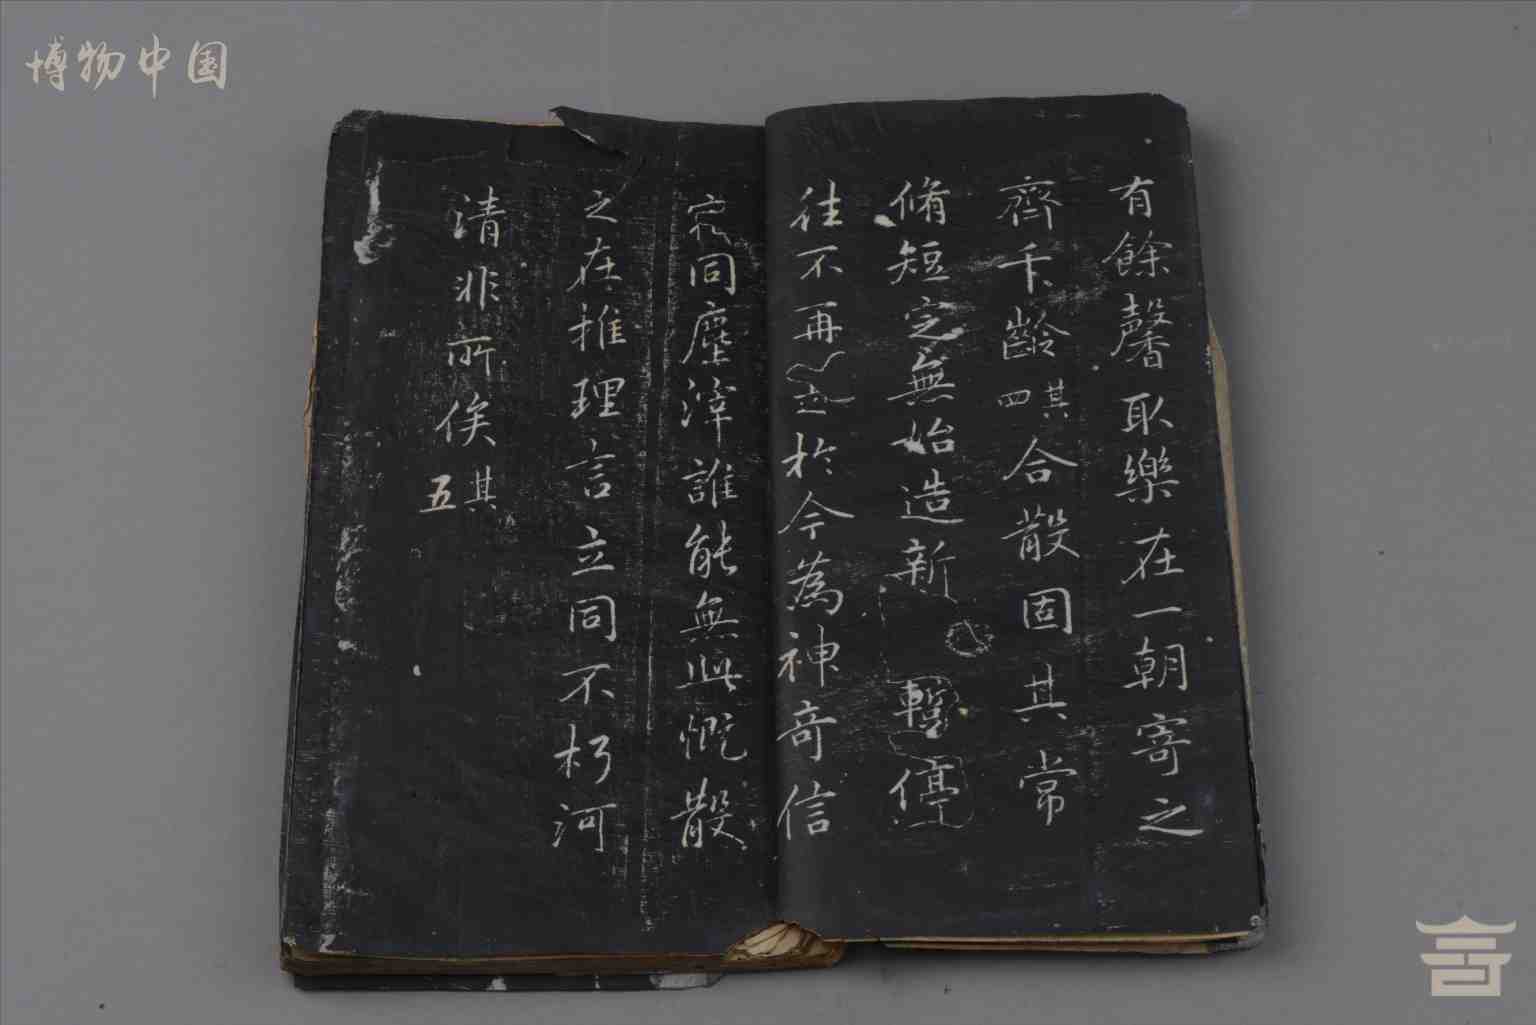 博物中国
有餘馨取樂在一朝寄之
齊千齡其四合散固其常
脩短定無始造新暫停
往不再起於今為神奇信
宿同塵滓誰能無此慨散
之在推理言立同不朽河
清非所俟其五